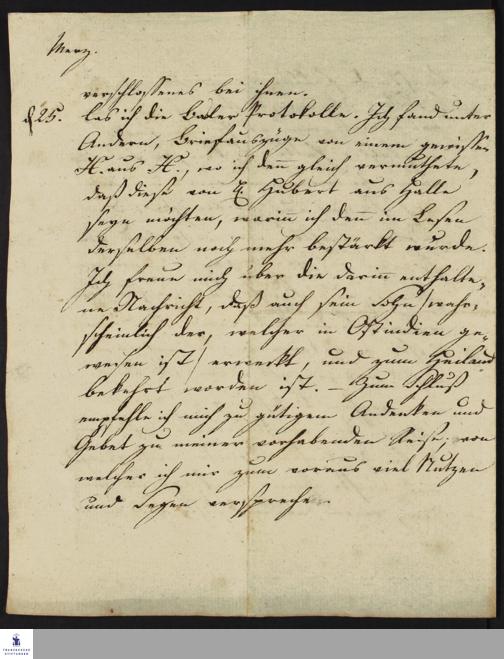 Merz.
verschlossenes bei ihnen.
d 25. las ich die Basler Protokolle. Ich fand unter
Andern, Briefauszüge von einem gewissen
H. aus H., wo ich denn gleich vermuthete,
daß diese von Hubert aus Halle
seyn möchten, worin ich denn im Lesen
derselben noch mehr bestärkt wurde.
Ich freue mich über die darin enthalte¬
ne Nachricht, daß auch sein Sohn /:wahr¬
scheinlich der, welcher in Ostindien ge¬
wesen ist:/ erweckt, und zum Heiland
bekehrt worden ist. – Zum Schluß
empfehle ich mich zu gütigem Andenken und
Gebet zu meiner vorhabenden Reise, von
welcher ich mir zum voraus viel Nutzen
und Segen verspreche.
FRANCKESCHE
STIFTUNGEN